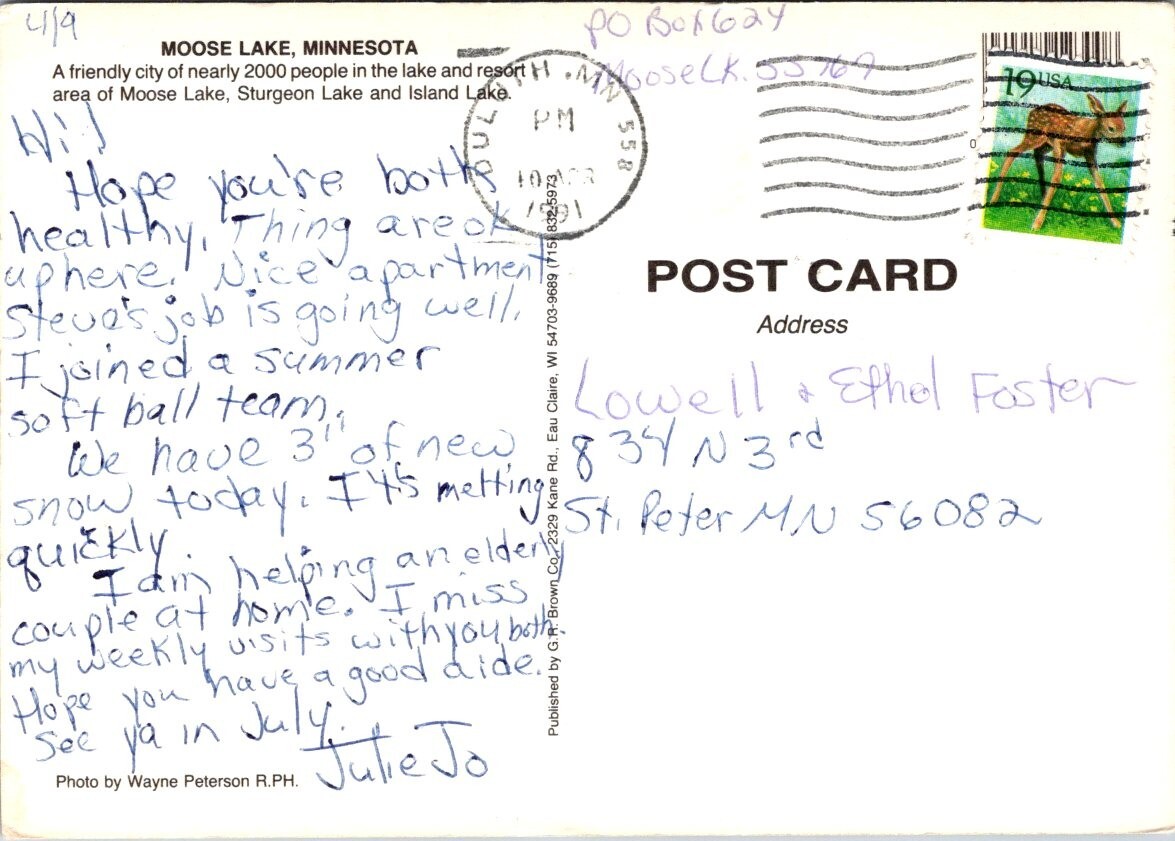 4/9
MOOSE LAKE, MINNESOTA
A friendly city of nearly 2000 people in the lake and resort
area of Moose Lake, Sturgeon Lake and Island Lake.
Hi!
Hope you're both
healthy. Thing are ok
up here. Nice apartment
Steve's job is going well.
I joined a summer
soft ball team.
We have 3" of new
snow today. It's melting
quickly.
I am helping an elderly
couple at home. I miss
my weekly visits with you both.
Hope you have a good aide.
See ya in July.
Julie Jo
Photo by Wayne Peterson R.PH.
Published by G.R. Brown Co., 2329 Kane Rd., Eau Claire, WI 54703-9689 (715) 832-5973
PO Box 624
Moose Lk. 55767
DULUTH, MN 558
PM
10 APR
1991
19 USA
0
POST CARD
Address
Lowell & Ethel Foster
834 N 3rd
St. Peter MN 56082